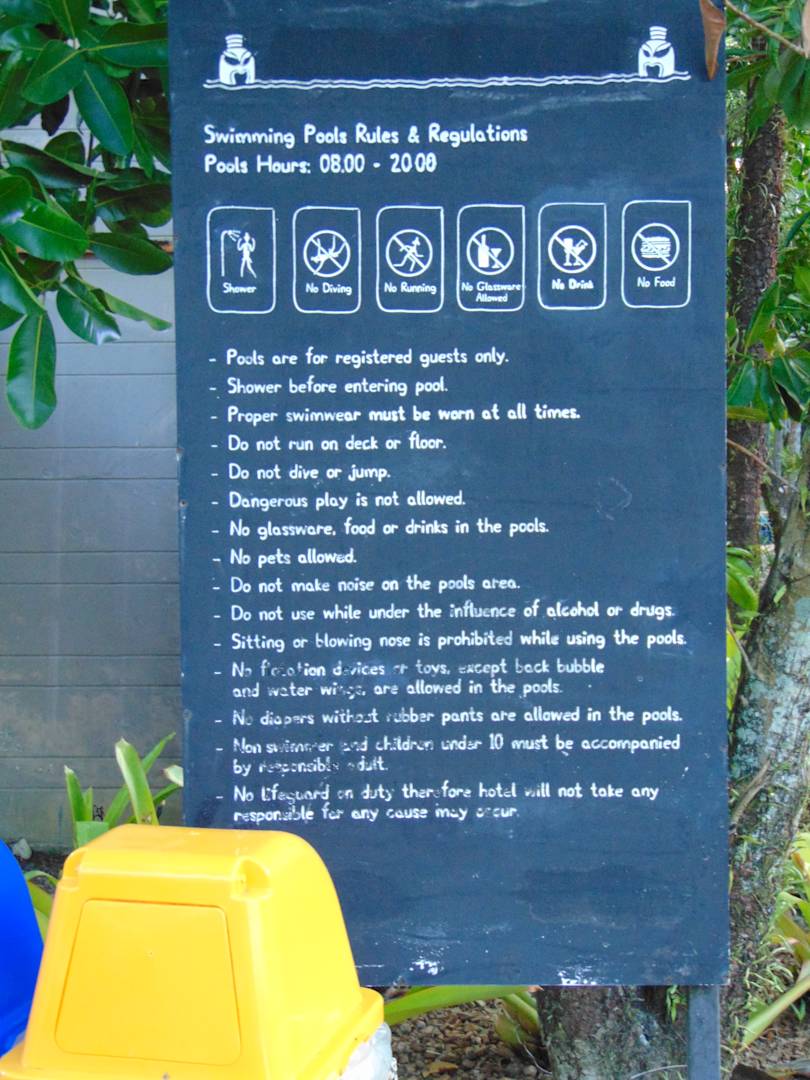 Swimming Pools Rules & Regulations
Pools Hours: 08.00 - 20.00
Shower
No Diving
No Running
No Glassware
Allowed
No Drink
No Food
- Pools are for registered guests only.
- Shower before entering pool.
- Proper swimwear must be worn at all times.
- Do not run on deck or floor.
- Do not dive or jump.
- Dangerous play is not allowed.
- No glassware, food or drinks in the pools.
- No pets allowed.
- Do not make noise on the pools area.
- Do not use while under the influence of alcohol or drugs.
- Sitting or blowing nose is prohibited while using the pools.
- No flotation devices or toys, except back bubble
and water wings, are allowed in the pools.
- No diapers without rubber pants are allowed in the pools.
- Non swimmer and children under 10 must be accompanied
by responsible adult.
- No lifeguard on duty therefore hotel will not take any
responsible for any cause may occur.